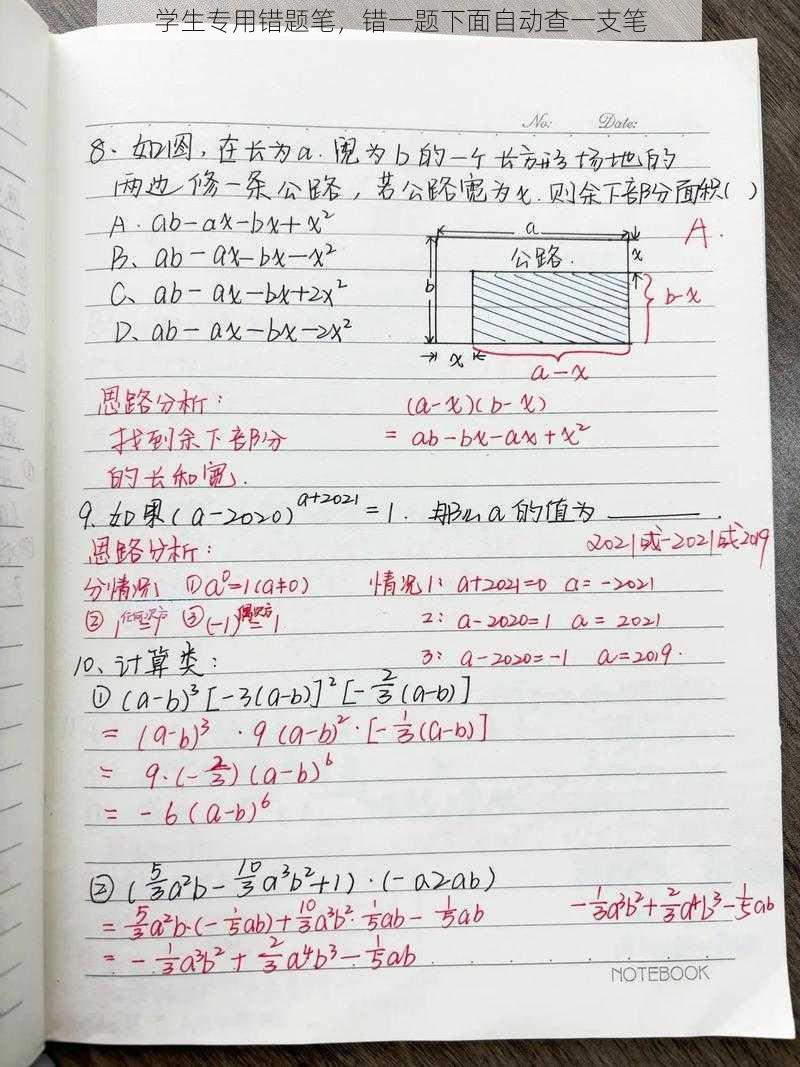 学生专用错题笔，错一题下面自动查一支笔
No: Date:
8、如图，在长为a.宽为b的一个长方形场地的
两边修一条公路，若公路宽为x.则余下部分面积( )
A. ab-ax-bx+x²
A.
B、ab-ax-bx-x²
C、ab-ax-bx+2x²
D、ab-ax-bx-2x²
a
公路.
x
b
b-x
x
a-x
思路分析:
(a-x)(b-x)
找到余下部分
= ab-bx-ax+x²
的长和宽.
9、如果(a-2020)^(a+2021)=1. 那么a的值为 ______.
思路分析:
2021或-2021或2019
分情况: ①a⁰=1(a≠0) 情况1: a+2021=0 a=-2021
② 1^任何次方=1 ③(-1)^偶次方=1 2: a-2020=1 a=2021
3: a-2020=-1 a=2019.
10、计算类:
①(a-b)³[-3(a-b)]²[-2/3(a-b)]
= (a-b)³·9(a-b)²·[-1/3(a-b)]
= 9·(-2/3)(a-b)⁶
= -6(a-b)⁶
②(5/3a²b-10/3a³b²+1)·(-a2ab)
-1/3a³b²+2/3a⁴b³-1/5ab
=5/3a²b·(-1/5ab)+10/3a³b²·1/5ab-1/5ab
=-1/3a³b²+2/3a⁴b³-1/5ab
NOTEBOOK